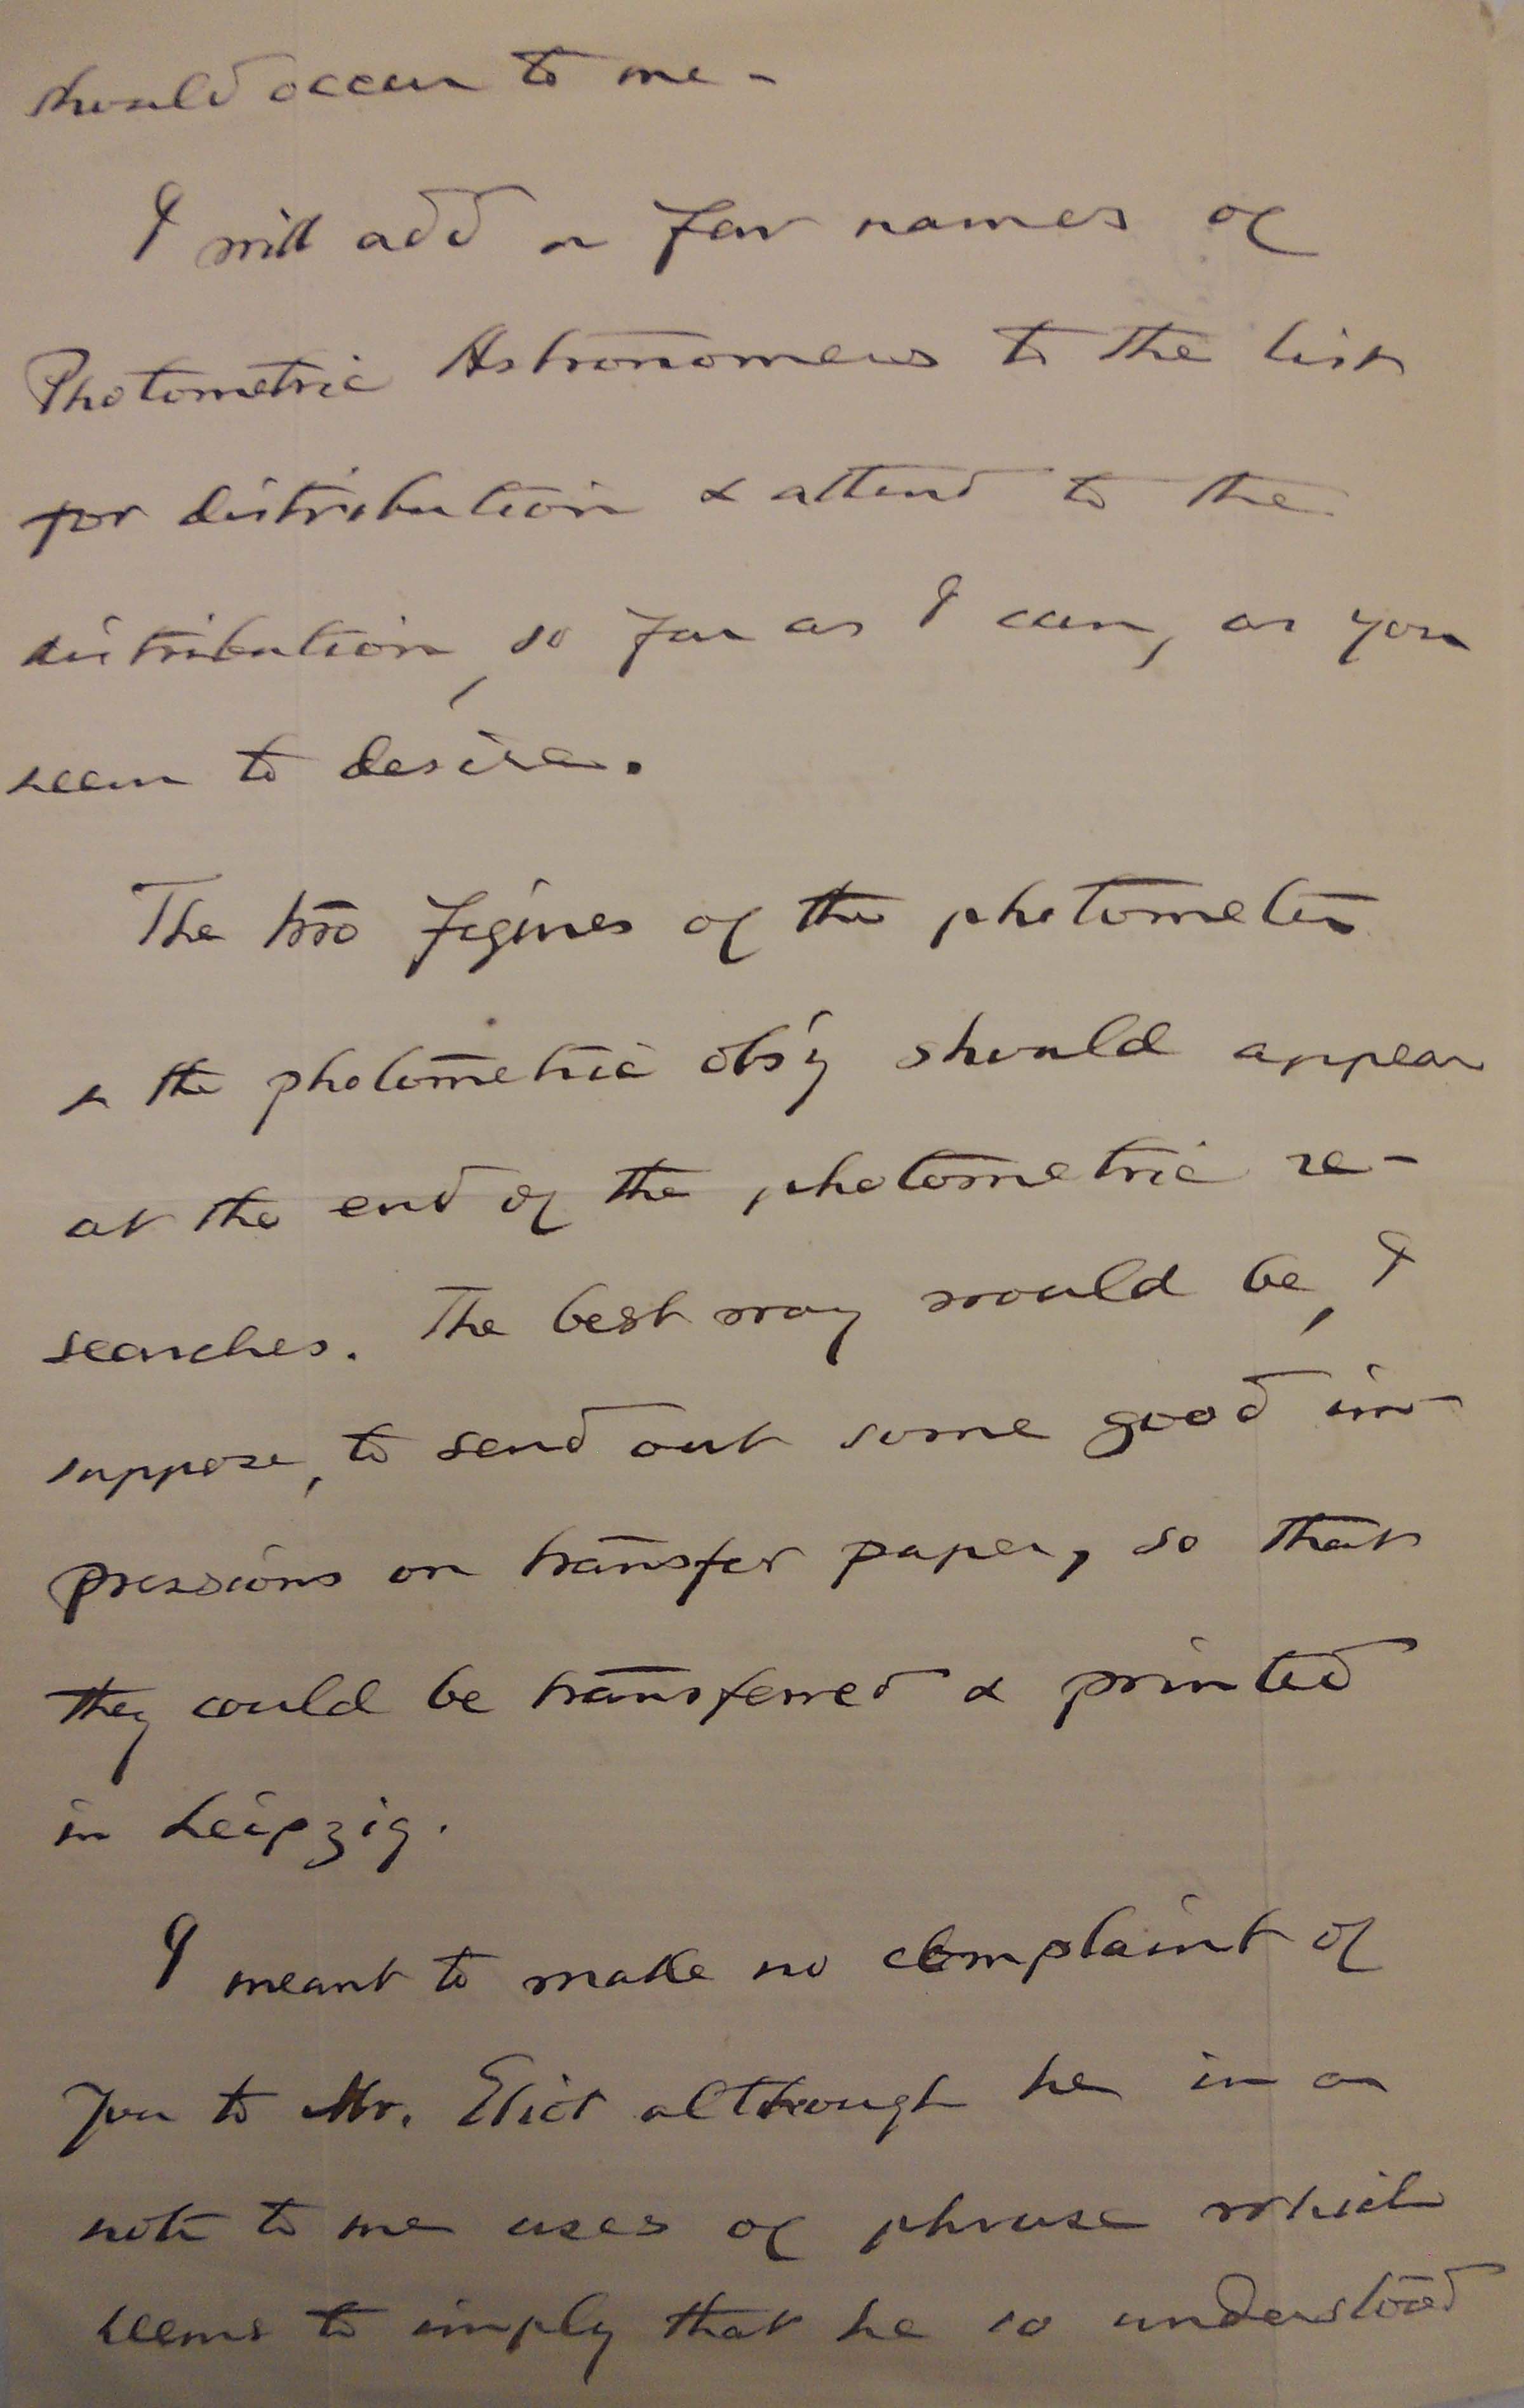 should occur to me -
I will add a few names of
Photometric Astronomers to the list
for distribution & attend to the
distribution, so far as I can, as you
seem to desire.
The two figures of the photometer
& the photometric obs'y should appear
at the end of the photometric re-
searches. The best way would be, I
suppose, to send out some good im-
pressions on transfer paper, so that
they could be transferred & printed
in Leipzig.
I meant to make no complaint of
you to Mr. Eliot although he in a
note to me uses of phrase which
seems to imply that he so understood